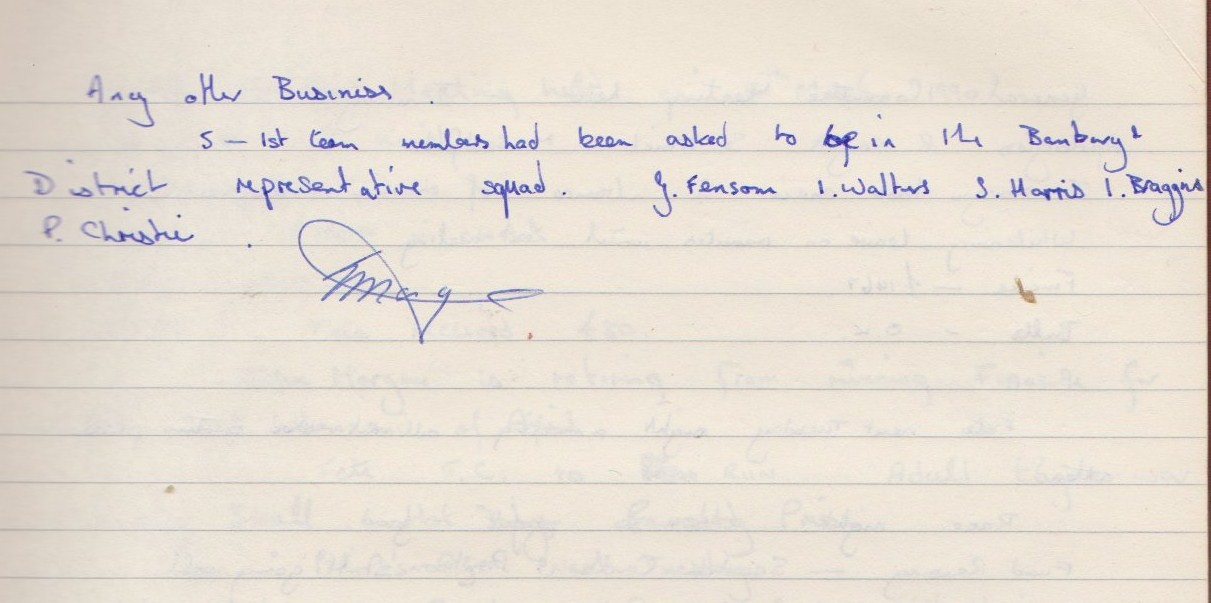 Any other Business .
5 – 1st team members had been asked to be in the Banbury &
District representative squad. G. Fensom I. Walters S. Harris I. Braggins
P. Christie .